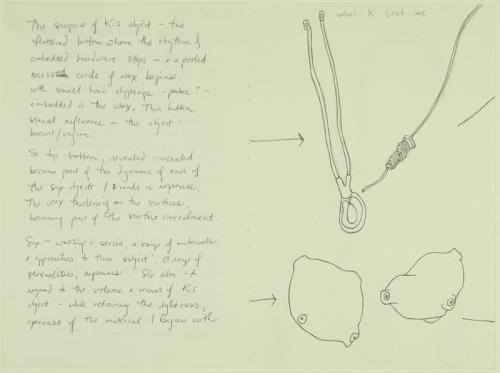 The surprise of K's object - the
flattened bottom where the rhythm of
embedded hardware stops - & a pooled
recessed circle of wax begins.
with small hair clippings - pubic? -
embedded in the wax. This hidden
sexual reference in the object:
breast/vagina.
So top - bottom, revealed concealed
became part of the dynamic of each of
the six objects I made in response.
The wax thickening on the surfaces,
becoming part of the surface concealment.
Six - wanting a series, a range of materials
& approaches to this subject. A range of
sensualities, responses. Six also - to
respond to the volume & mass of K's
object - while retaining the lightness,
openness of the material I began with
what K sent me